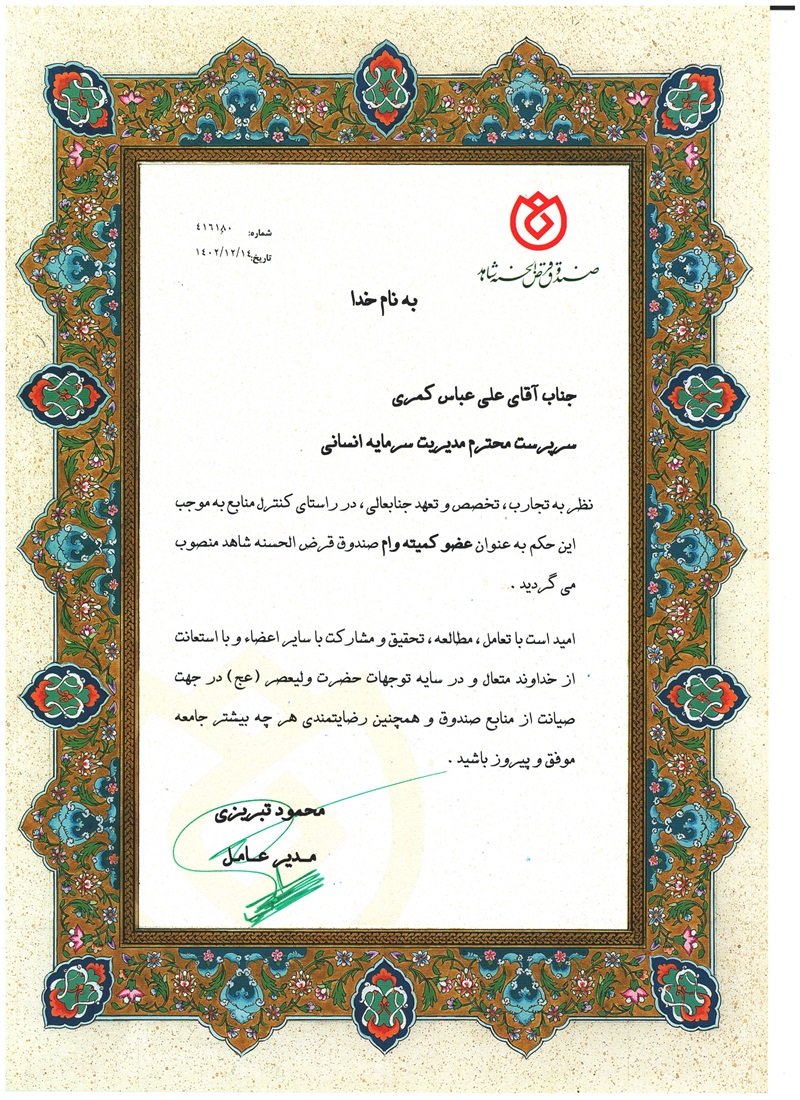 صندوق قرض الحسنه شاهد
شماره: ٤١٦١٨٠
تاریخ: ١٤٠٢/١٢/١٤
به نام خدا
جناب آقای علی عباس کمری
سرپرست محترم مدیریت سرمایه انسانی
نظر به تجارب، تخصص و تعهد جنابعالی، در راستای کنترل منابع به موجب
این حکم به عنوان عضو کمیته وام صندوق قرض الحسنه شاهد منصوب
می گردید.
امید است با تعامل، مطالعه، تحقیق و مشارکت با سایر اعضاء و با استعانت
از خداوند متعال و در سایه توجهات حضرت ولیعصر (عج) در جهت
صیانت از منابع صندوق و همچنین رضایتمندی هر چه بیشتر جامعه
موفق و پیروز باشید.
محمود تبریزی
مدیر عامل